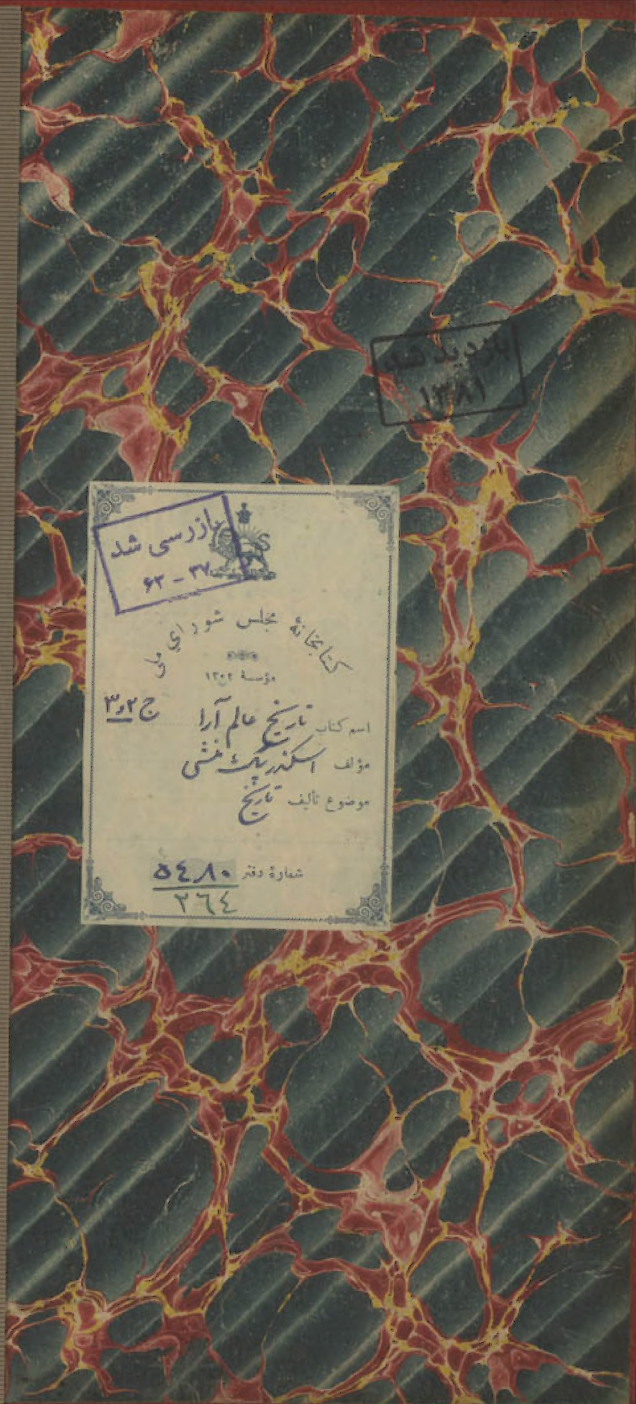 بازدید شد
۱۳۸۱
بازرسی شد
۳۷ - ۶۲
کتابخانهٔ مجلس شورای ملی
مؤسسهٔ ۱۳۰۲
اسم کتاب تاریخ عالم آرا ج ۲ و ۳
مؤلف اسکندر بیک منشی
موضوع تألیف تاریخ
شمارهٔ دفتر ۵۴۸۰
۲۶۴